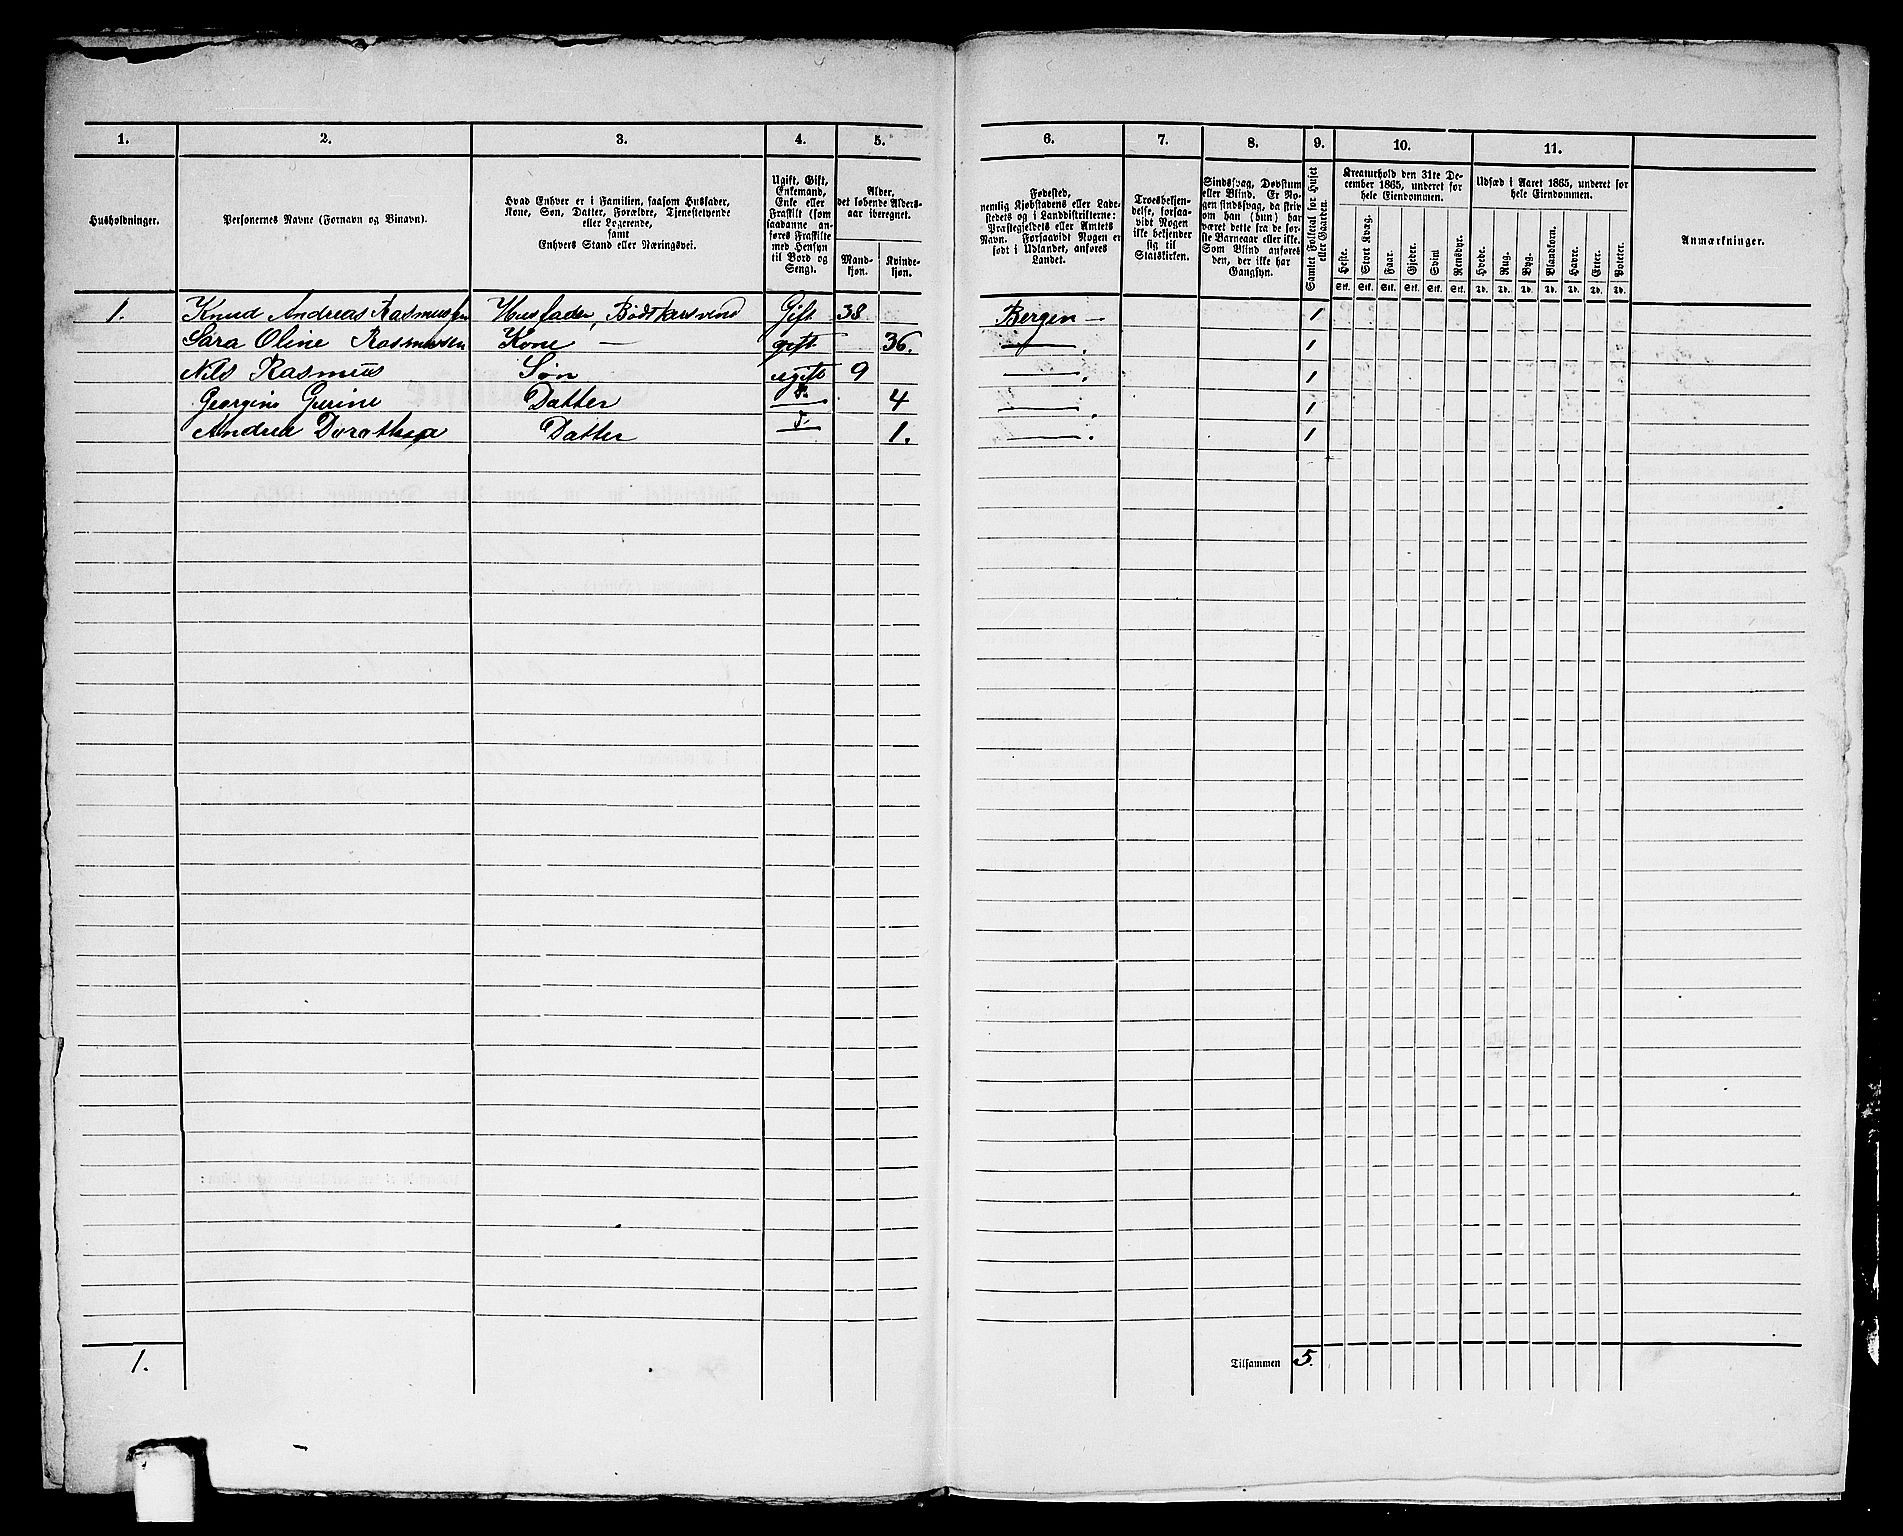 1. 2. 3. 4. 5. 6. 7. 8. 9. 10. 11.
Husholdninger.
Personernes Navne (Fornavn og Binavn).
Hvad Enhver er i Familien, saasom Husfader,
Kone, Søn, Datter, Forældre, Tjenestetyende
eller Logerende,
samt
Enhvers Stand eller Næringsvei.
Ugift, Gift,
Enkemand,
Enke eller
Fraskilt (som
saadanne an-
føres Fraskilte
med Hensyn
til Bord og
Seng).
Alder,
det løbende Alders-
aar iberegnet.
Mand-
kjøn.
Kvinde-
kjøn.
Fødested,
nemlig Kjøbstadens eller Lade-
stedets og i Landdistrikterne:
Præstegjeldets eller Amtets
Navn. Forsaavidt Nogen er
født i Udlandet, anføres
Landet.
Troesbekjen-
delse, forsaa-
vidt Nogen
ikke bekjender
sig til
Statskirken.
Sindssvag, Døvstum
eller Blind. Er No-
gen sindssvag, da skriv
om han (hun) har
været dette fra de før-
ste Barneaar eller ikke.
Som Blind anføres
den, der ikke har
Gangsyn.
Samlet Folketal for Huset
eller Gaarden.
Kreaturhold den 31te De-
cember 1865, underet for
hele Eiendommen.
Heste. Stort Kvæg. Faar. Gjeder. Sviin. Rensdyr.
Stk. Stk. Stk. Stk. Stk. Stk.
Udsæd i Aaret 1865, underet for
hele Eiendommen.
Hvede. Rug. Byg. Blandkorn. Havre. Erter. Poteter.
Td. Td. Td. Td. Td. Td. Td.
Anmærkninger.
1. Knud Andreas Rasmussen Husfader, Bødtkersvend Gift 38 Bergen — 1
Sara Oline Rasmussen Kone — gift 36. — . 1
Nils Rasmus Søn ugift 9 — . 1
Georgine Gurine Datter — 4 — . 1
Andrea Dorothea Datter — 1. — . 1
1. Tilsammen 5.